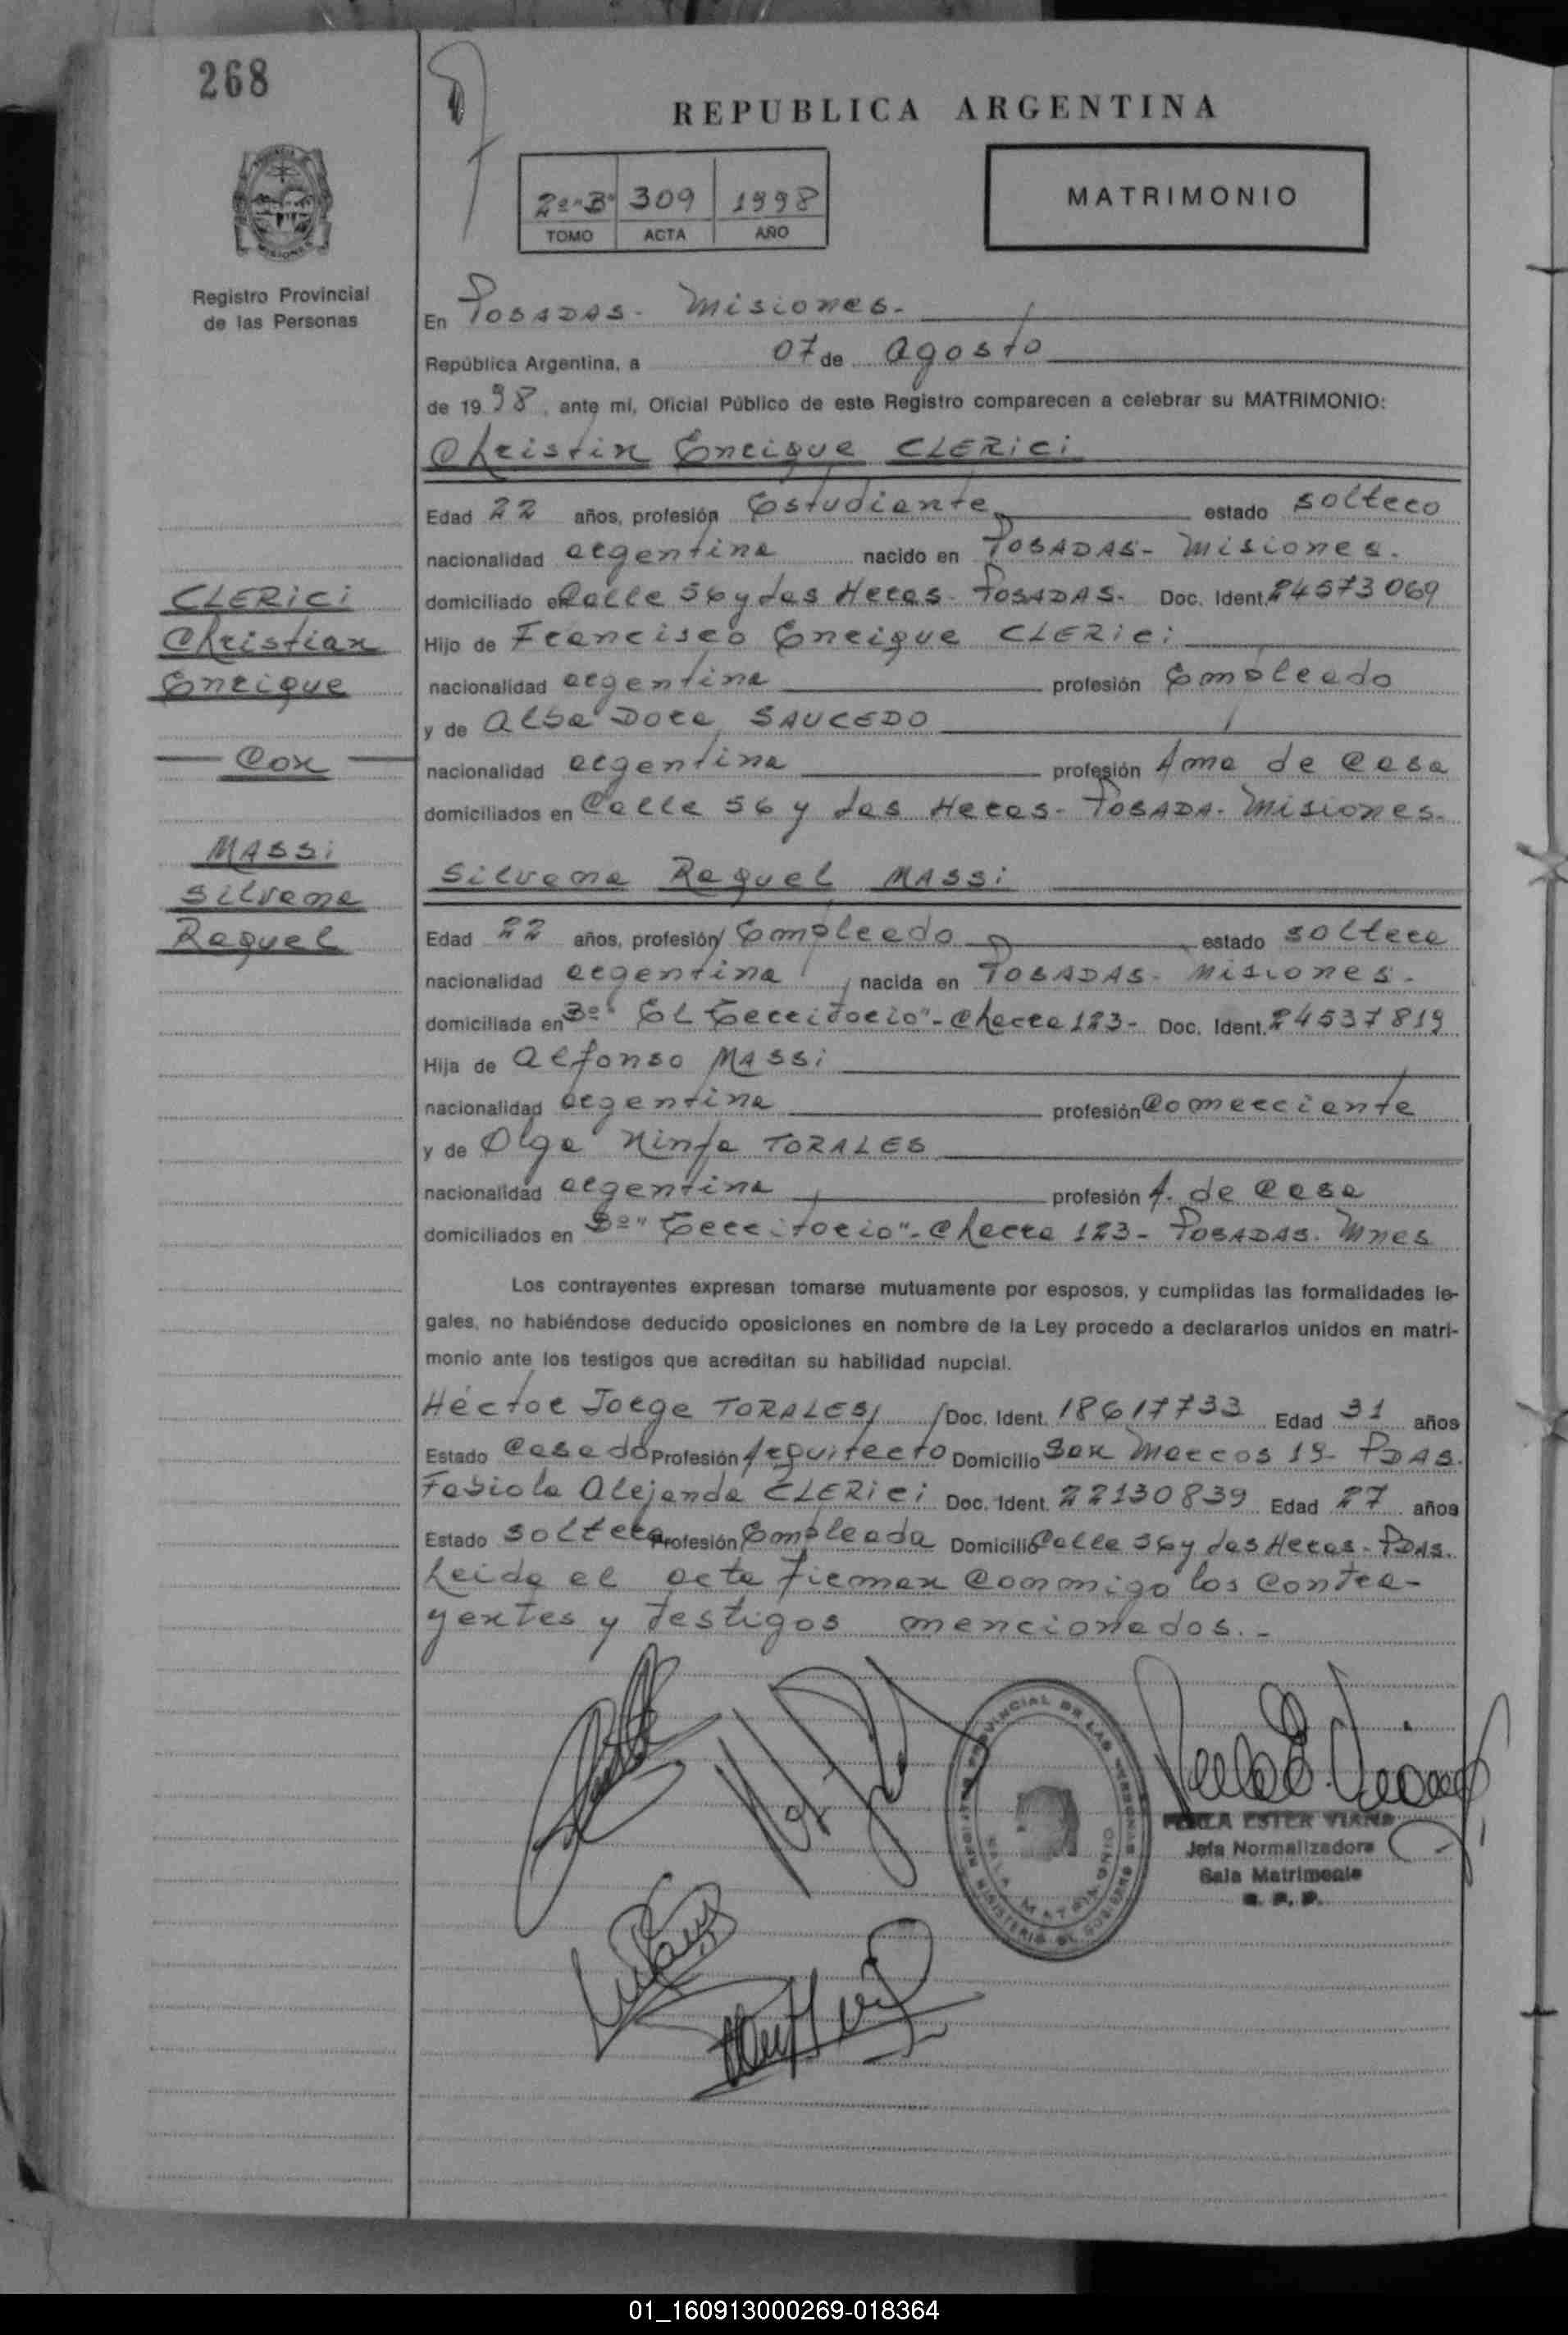 268
REPUBLICA ARGENTINA
2º "B" 309 1998
TOMO ACTA AÑO
MATRIMONIO
Registro Provincial
de las Personas
En POSADAS - Misiones.-
República Argentina, a 07 de Agosto
de 19 98, ante mí, Oficial Público de este Registro comparecen a celebrar su MATRIMONIO:
Christin Enrique CLERici
Edad 22 años, profesión Estudiante estado soltero
nacionalidad argentina nacido en POSADAS - Misiones.
domiciliado en Calle 56 y Las Heras - POSADAS. Doc. Ident. 24573069
Hijo de Francisco Enrique CLERici
nacionalidad argentina profesión Empleado
y de Alba Dora SAUCEDO
nacionalidad argentina profesión Ama de Casa
domiciliados en Calle 56 y Las Heras - POSADA - Misiones.
CLERici
Christian
Enrique
Con
MASSi
Silvana
Raquel
Silvana Raquel MASSi
Edad 22 años, profesión Empleado estado soltera
nacionalidad argentina nacida en POSADAS - Misiones.
domiciliada en Bº "El Territorio" - Chacra 123 - Doc. Ident. 24537819
Hija de Alfonso MASSi
nacionalidad argentina profesión Comerciante
y de Olga Ninfa TORALES
nacionalidad argentina profesión A. de Casa
domiciliados en Bº "Territorio" - Chacra 123 - POSADAS. Mnes
Los contrayentes expresan tomarse mutuamente por esposos, y cumplidas las formalidades le-
gales, no habiéndose deducido oposiciones en nombre de la Ley procedo a declararlos unidos en matri-
monio ante los testigos que acreditan su habilidad nupcial.
Héctor Jorge TORALES Doc. Ident. 18617733 Edad 31 años
Estado Casado Profesión Arquitecto Domicilio San Marcos 19 - PDAS.
Fabiola Alejanda CLERici Doc. Ident. 22130839 Edad 27 años
Estado soltera Profesión Empleada Domicilio Calle 56 y Las Heras - PDAS.
Leida el acta firman conmigo los contra-
yentes y testigos mencionados.-
REGISTRO PROVINCIAL DE LAS PERSONAS
SALA MATRIMONIO
MINISTERIO DE GOBIERNO
PERLA ESTER VIANA
Jefa Normalizadora
Sala Matrimonio
R. P. P.
01_160913000269-018364